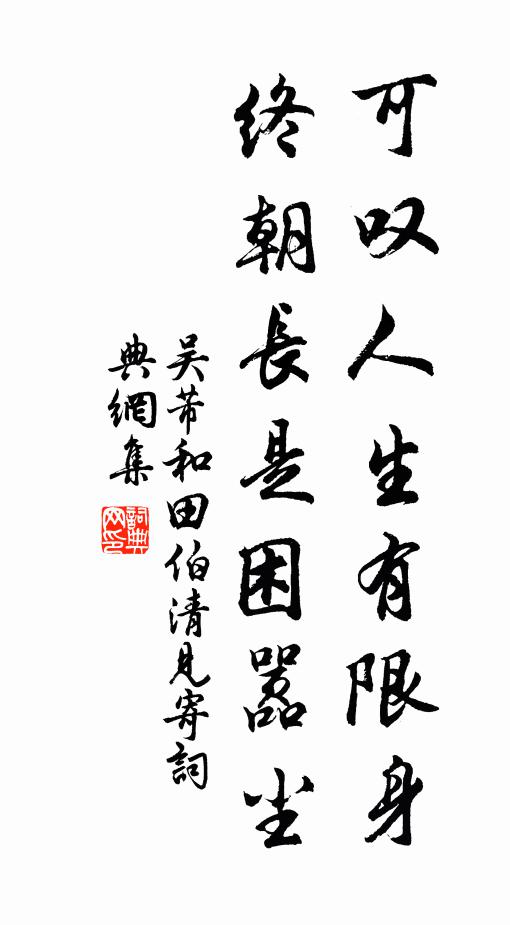 可叹人生有限身
终朝長是困嚣尘
吴芾和田伯清見寄詞
典網集
詞典
网印